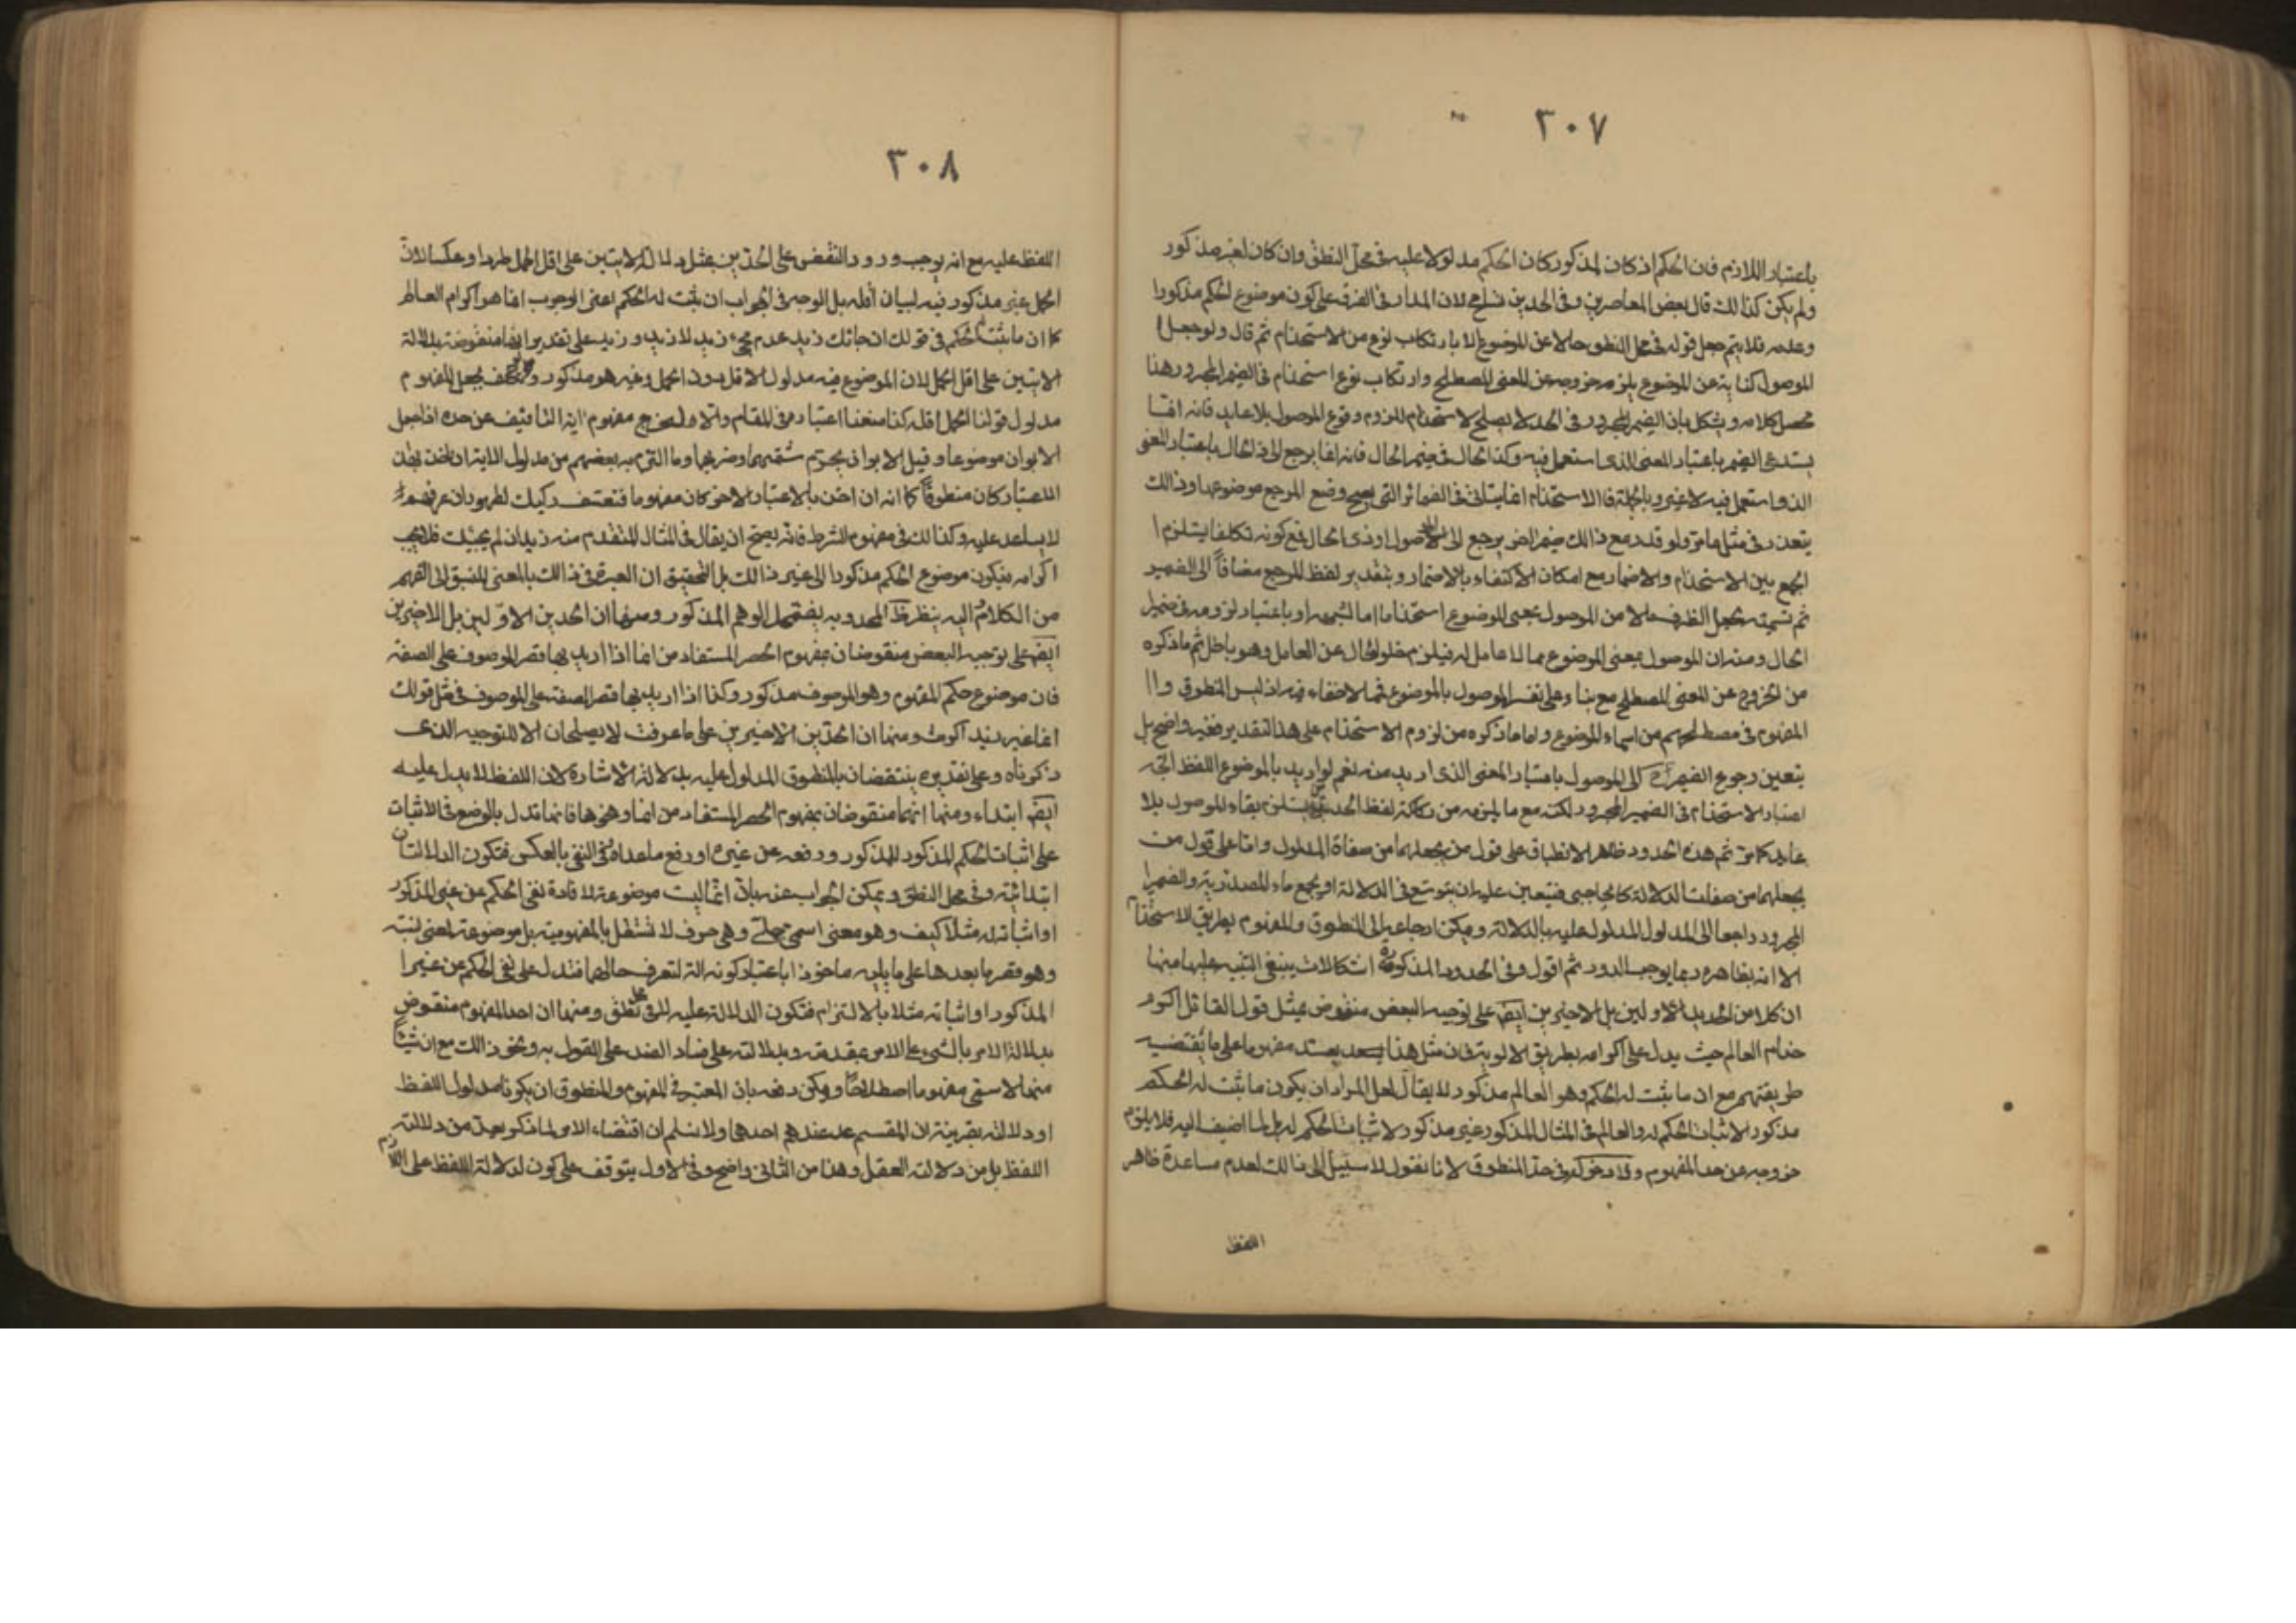 ٣٠٧
باعتبار اللازم فان الحكم ان كان لمذكور كان الحكم مدلولا عليه فى محل النطق وان كان لغير مذكور
ولم يكن كذلك قال بعض المعاصرين وفى الحدين تسامح لان المدار فى الفرق على كون موضوع الحكم مذكورا
وعدمه فلا يتم جعل قوله فى محل النطق حالا عن الموضوع الا بارتكاب نوع من الاستخدام ثم قال ولو جعل ا
الموصول كناية عن الموضوع يلزم خروجه عن المعنى المصطلح وارتكاب نوع استخدام فى الضمير المجرور هذا
محصل كلامه ويشكل بان الضمير المجرور فى الحد لا يصلح لاستخدام للزوم وقوع الموصول بلا عايد فانه انما
يستدعى الضمير باعتبار المعنى الذى استعمل فيه وكذا الحال فى ضمير الحال فانه انما يرجع الى ذى الحال باعتبار المعنى
الذى استعمل فيه لا غير وبالجملة فالاستخدام انما يتاتى فى الضمائر التى يصح وضع المرجع موضوعها وذلك
يتعذر فى مثل ما مر ولو قدر مع ذلك ضمير اخر يرجع الى الموصول او ذى الحال فمع كونه تكلفا يستلزم ا
الجمع بين الاستخدام والاضمار مع امكان الاكتفاء بالاضمار وبتقدير لفظ المرجع مضافا الى الضمير
ثم تسميته بجعل الظرف حالا من الموصول بمعنى الموضوع استخداما اما لشبهه او باعتبار لزومه فى ضمير
الحال ومنه ان الموصول بمعنى الموضوع مما لا عامل له فيلزم خلو الحال عن العامل وهو باطل ثم ما ذكره
من الخروج عن المعنى المصطلح مع بناء على تفسير الموصول بالموضوع فمما لا خفاء فيه اذ ليس المنطوق و ا ا
المفهوم فى مصطلحهم من اسماء الموضوع واما ما ذكره من لزوم الاستخدام على هذا التقدير فغير واضح بل
يتعين رجوع الضمير الى الموصول باعتبار المعنى الذى اريد منه نعم لو اريد بالموضوع اللفظ اتجه
اعتبار الاستخدام فى الضمير المجرور لكنه مع ما يلزمه من ركاكة لفظ الحد يستلزم بقاء الموصول بلا
عايد كما مر ثم هذه الحدود ظاهر الانطباق على قول من يجعلهما من صفاة المدلول واما على قول من
يجعلهما من صفات الدلالة كالحاجبى فيتعين عليه ان يتوسع فى الدلالة او يجمع ماء المصدرية والضمير ا
المجرور راجعا الى المدلول المدلول عليه بالدلالة ويمكن ارجاعه الى المنطوق والمفهوم بطريق الاستخدام
الا انه بظاهره ربما يوجب الدور ثم اقول وفى الحدود المذكورة اشكالات ينبغى التنبيه عليها منها
ان كلا من الحدين الاولين بل الاخيرين ايضا على توجيه البعض منقوض بمثل قول القائل اكرم
خدام العالم حيث يدل على اكرامه بطريق الاولوية فان مثل هذا يعد مفهوما على ما يقتضيه
طريقتهم مع ان ما يثبت له الحكم وهو العالم مذكور لا يقال لعل المراد ان يكون ما ثبت له الحكم
مذكور الاثبات الحكم له والعالم فى المثال المذكور غير مذكور لاثبات الحكم له بل لما اضيف اليه فلا يلزم
خروجه عن حد المفهوم ولا دخوله فى حد المنطوق لانا نقول لا سبيل الى ذلك لعدم مساعدة ظاهر
اللفظ
٣٠٨
اللفظ عليه مع انه يوجب ورود النقض على الحدين بمثل دلالة الايتين على اقل الحمل طردا وعكسا لان
الحمل غير مذكور فيه لبيان اقله بل الوجه فى الجواب ان يثبت له الحكم اعنى الوجوب انما هو اكرام العالم
كما ان ما يثبت الحكم فى قولك ان جائك زيد عدم مجئ زيد لا زيد وزيد على تقدير ايضا منقوضة بدلالة
الايتين على اقل الحمل لان الموضوع فيه مدلول الاقل دون الحمل وغيره هو مذكور ولو تكلف بجعل المفهوم
مدلول قولنا الحمل اقله كذا منعنا اعتباره فى المقام والا ولخرج مفهوم اية التافيف عن حده اذا جعل
الابوان موضوعا وقيل الابوان يحرم شتمهما وضربهما وما التزم به بعضهم من مدلول الايتين ان اخذ بهذا
الاعتبار كان منطوقا كما انه ان اخذ بالاعتبار الاخر كان مفهوما فتعسف ركيك لظهور ان عرفهم
لا يساعد عليه وكذلك فى مفهوم الشرط فانه يصح ان يقال فى المثال المتقدم منه زيد ان لم يجئك فلا يجب
اكرامه فيكون موضوع الحكم مذكورا الى غير ذلك بل التحقيق ان العبرة فى ذلك بالمعنى المنسبق الى الفهم
من الكلام واليه ينظر المحدود به يضمحل الوهم المذكور ومنها ان الحدين الاولين بل الاخيرين
ايضا على توجيه البعض منقوضان بمفهوم الحصر المستفاد من انما اذا اريد بها قصر الموصوف على الصفة
فان موضوع حكم المفهوم وهو الموصوف مذكور وكذا اذا اريد بها قصر الصفة على الموصوف فى مثل قولك
انما غير زيد اكرمت ومنها ان الحدين الاخيرين على ما عرفت لا يصلحان الا للتوجيه الذى
ذكرناه وعلى تقديره ينتقضان بالمنطوق المدلول عليه بدلالة الاشارة لان اللفظ لا يدل عليه
ايضا ابتداء ومنها انهما منقوضان بمفهوم الحصر المستفاد من انما ونحوها فانما تدل بالوضع فى الاثبات
على اثبات الحكم المذكور للمذكور ورفعه عن غيره او رفع ما عداه وفى النفى بالعكس فتكون الدلالتان
ابتدائية وفى محل النطق ويمكن الجواب عنه بان انما ليست موضوعة لافادة نفى الحكم عن غير المذكور
او اثباته له مثلا كيف وهو معنى اسمى جملى وهى حرف لا تستقل بالمفهومية بل موضوعة لمعنى نسبة
وهو قصر ما بعدها على ما يليه ماخوذا باعتبار كونه الة لتعرف حالهما فتدل على نفى الحكم عن غير ا
المذكور او اثباته مثلا بالالتزام فتكون الدلالة عليه لا فى محل نطق ومنها ان احد المفهوم منقوض
بدلالة الامر بالشئ على الامر بمقدمته وبدلالته على فساد الضد على القول به ونحو ذلك مع ان شيئا
منها لا يسمى مفهوما اصطلاحا ويمكن دفعه بان المعتبر فى المفهوم والمنطوق ان يكونا مدلول اللفظ
او دلالته بقرينة ان المقسم عندهم احدهما ولا نسلم ان اقتضاء الامر لما ذكر يعد من دلالة
اللفظ بل من دلالة العقل وهذا من الثانى واضح وفى الاول يتوقف على كون لدلالة اللفظ على اللازم